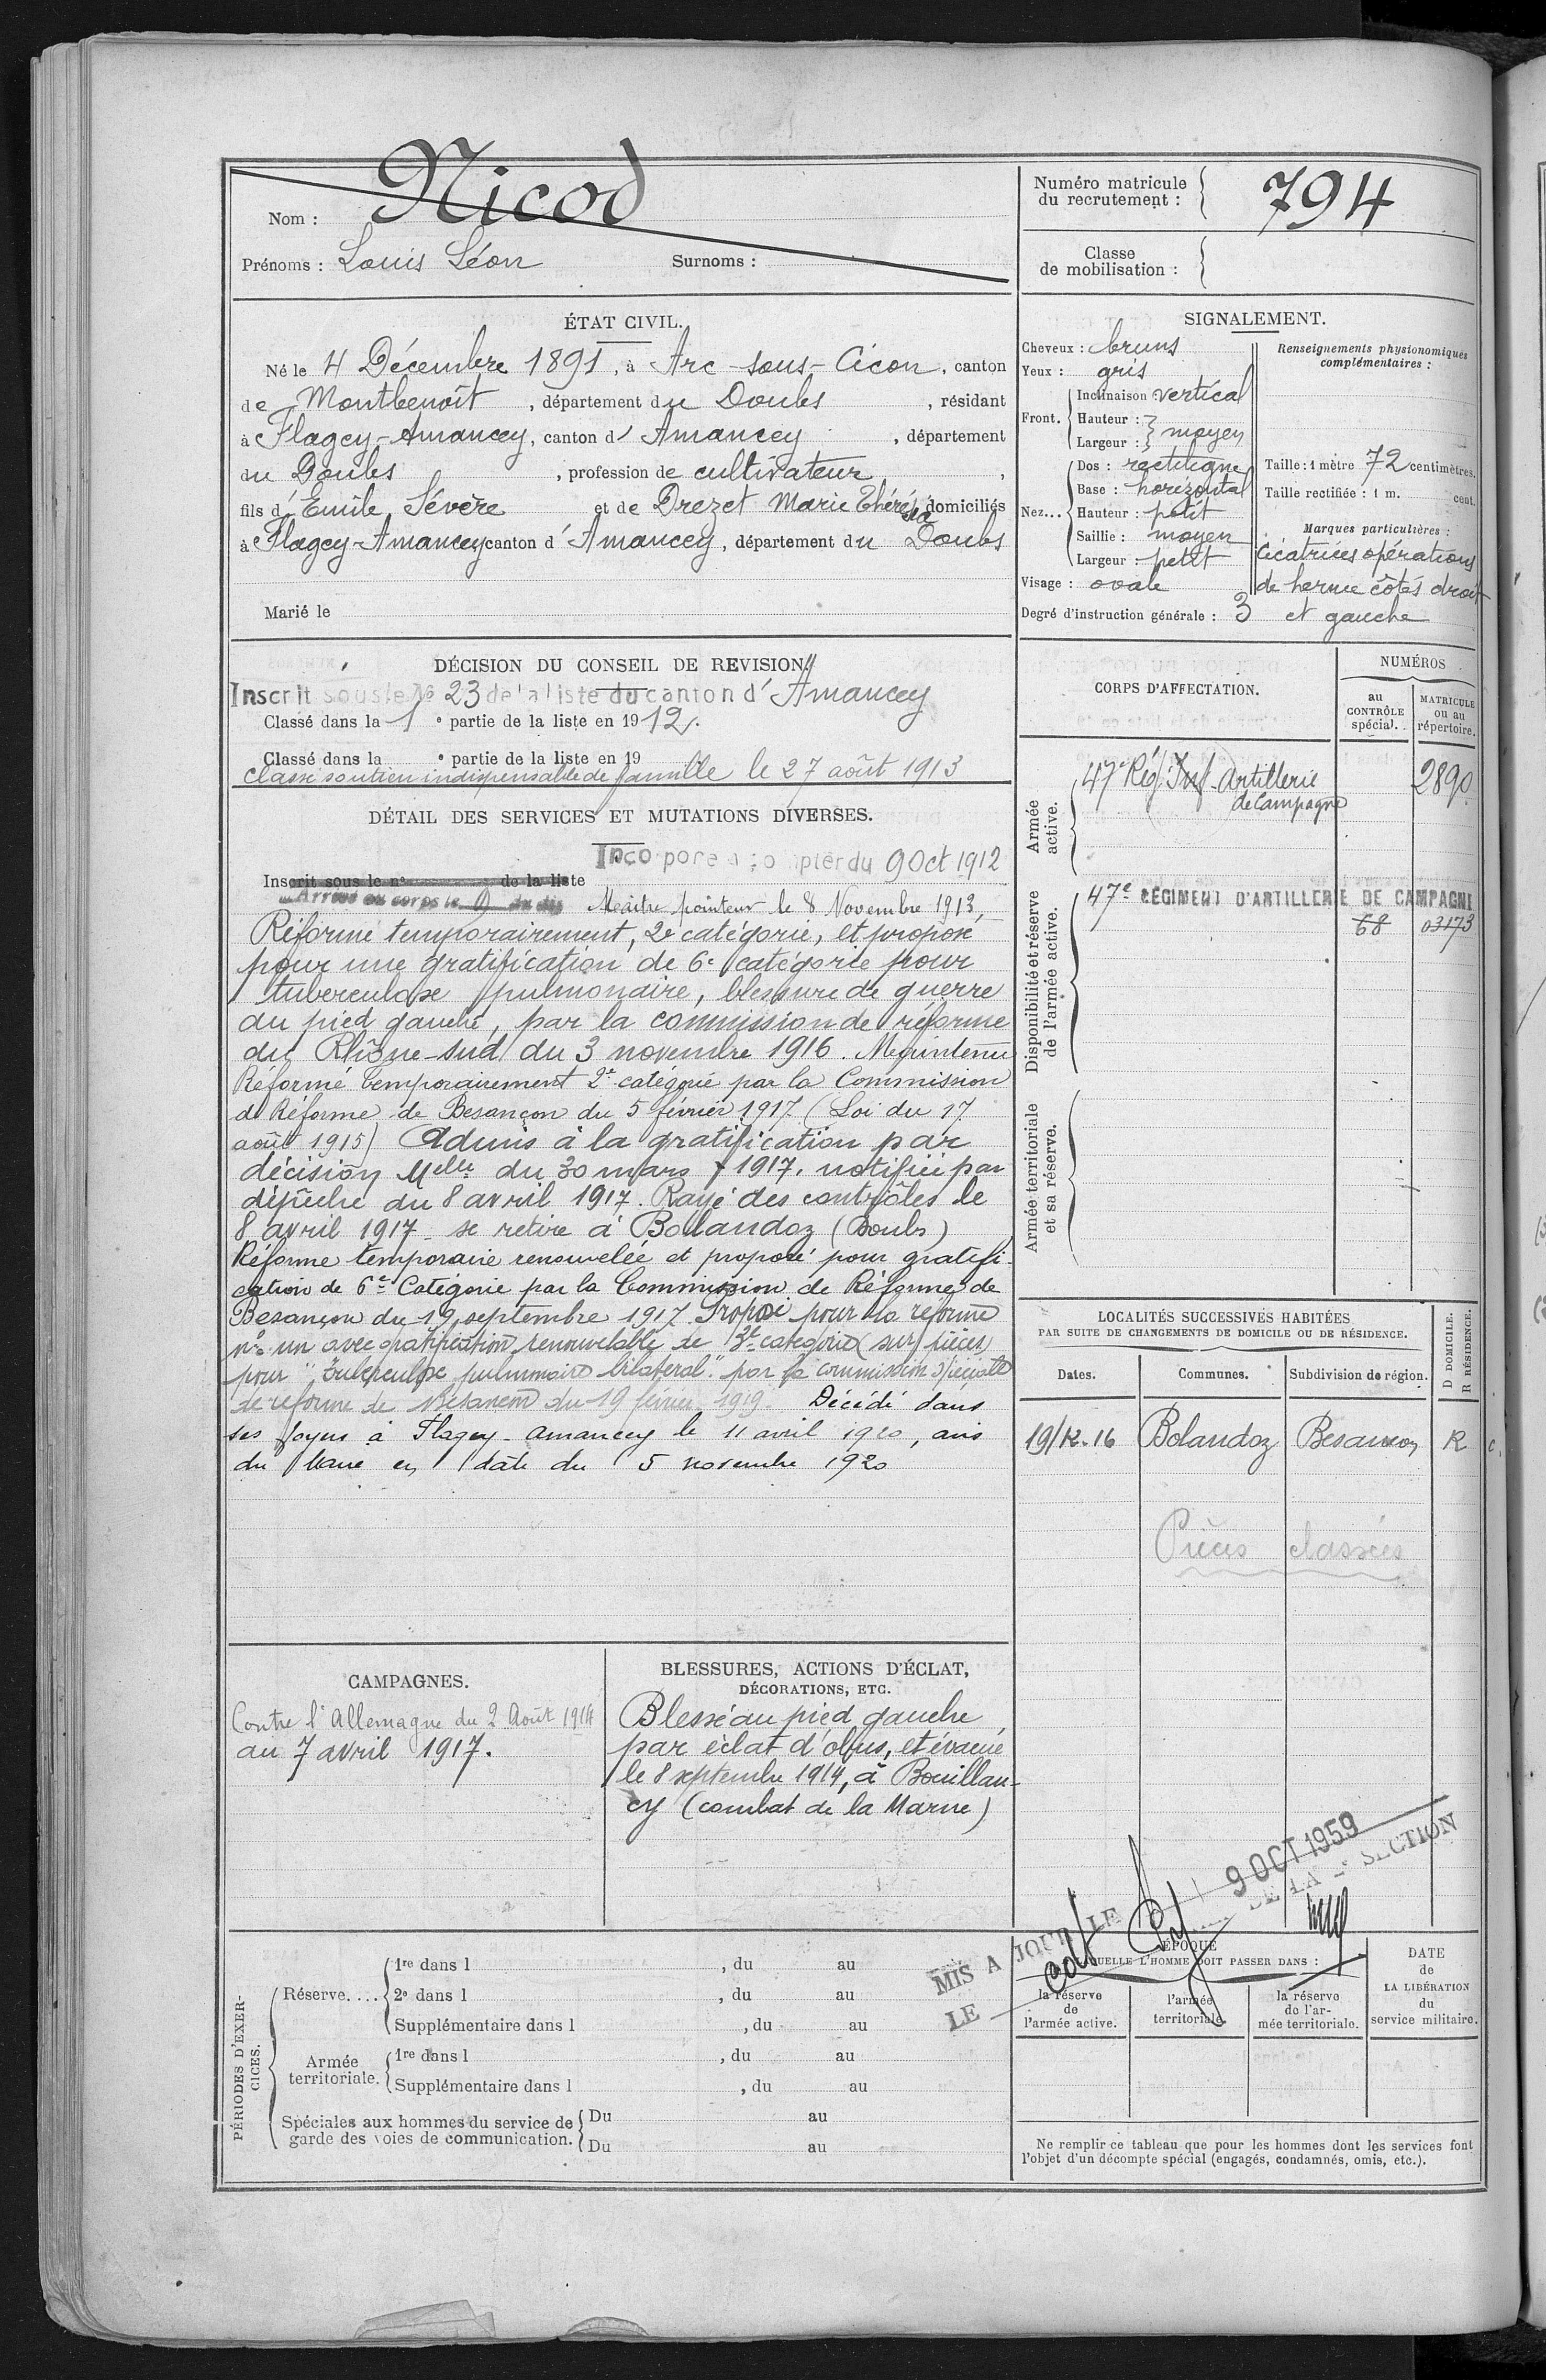 Nom : Nicod
Prénoms : Louis Léon Surnoms :
Numéro matricule du recrutement : 794
Classe de mobilisation :
ÉTAT CIVIL.
Né le 4 Décembre 1891, à Arc-sous-Cicon, canton
de Montbenoît, département du Doubs, résidant
à Flagey-Amancey, canton d'Amancey, département
du Doubs, profession de cultivateur,
fils d'Emile Sévère et de Drezet Marie Thérésia domiciliés
à Flagey-Amancey canton d'Amancey, département du Doubs
Marié le
SIGNALEMENT.
Cheveux : bruns
Yeux : gris
Front. Inclinaison vertical
Hauteur :
Largeur : moyen
Nez... Dos : rectiligne
Base : horizontal
Hauteur : petit
Saillie : moyen
Largeur : petit
Visage : ovale
Degré d'instruction générale : 3
Renseignements physionomiques
complémentaires :
Taille : 1 mètre 72 centimètres.
Taille rectifiée : 1 m. cent.
Marques particulières :
Cicatrices opérations
de hernie côtés droit
et gauche
DÉCISION DU CONSEIL DE REVISION.
Inscrit sous le No 23 de la liste du canton d'Amancey
Classé dans la 1e partie de la liste en 1912.
Classé dans la e partie de la liste en 19
classé soutien indispensable de famille le 27 août 1913
DÉTAIL DES SERVICES ET MUTATIONS DIVERSES.
Incorporé à compter du 9 Oct 1912
Inscrit sous le no de la liste
Arrivé au corps le 9 du dit Maître pointeur le 8 Novembre 1913,
Réformé temporairement, 2e catégorie, et proposé
pour une gratification de 6e catégorie pour
tuberculose pulmonaire, blessure de guerre
au pied gauche, par la commission de réforme
du Rhône-sud du 3 novembre 1916. Maintenu
Réformé temporairement 2e catégorie par la Commission
de Réforme de Besançon du 5 février 1917 (Loi du 17
août 1915) Admis à la gratification par
décision Mlle du 30 mars 1917, notifiée par
dépêche du 8 avril 1917. Rayé des contrôles le
8 avril 1917 - se retire à Bolandoz (Doubs)
Réforme temporaire renouvelée et proposé pour gratifi-
cation de 6e Catégorie par la Commission de Réforme de
Besançon du 19 septembre 1917. Proposé pour la réforme
no un avec gratification renouvelable de 3e catégorie (sur pièces)
pour "Tuberculose pulmonaire bilatéral" par la commission spéciale
de réforme de Besançon du 19 février 1919. Décédé dans
ses foyers à Flagey-Amancey le 11 avril 1920, avis
du Maire en date du 5 novembre 1920
CORPS D'AFFECTATION.
NUMÉROS
au CONTRÔLE spécial.
MATRICULE ou au répertoire.
Armée active.
47e Rég. Inf. Artillerie de Campagne 2890
Disponibilité et réserve de l'armée active.
47e RÉGIMENT D'ARTILLERIE DE CAMPAGNE
68 03173
Armée territoriale et sa réserve.
LOCALITÉS SUCCESSIVES HABITÉES
PAR SUITE DE CHANGEMENTS DE DOMICILE OU DE RÉSIDENCE.
Dates. Communes. Subdivision de région. D DOMICILE. R RÉSIDENCE.
19/12-16 Bolandoz Besançon R
Pièces classées
CAMPAGNES.
Contre l'Allemagne du 2 Août 1914
au 7 avril 1917.
BLESSURES, ACTIONS D'ÉCLAT,
DÉCORATIONS, ETC.
Blessé au pied gauche
par éclat d'obus, et évacué
le 8 septembre 1914, à Bouillan-
cy (combat de la Marne)
MIS A JOUR LE 9 OCT 1959
LE DE LA 2e SECTION
PÉRIODES D'EXERCICES.
Réserve.... 1re dans l , du au
2e dans l , du au
Supplémentaire dans l , du au
Armée territoriale. 1re dans l , du au
Supplémentaire dans l , du au
Spéciales aux hommes du service de garde des voies de communication. Du au
Du au
ÉPOQUE
À LAQUELLE L'HOMME DOIT PASSER DANS :
la réserve de l'armée active.
l'armée territoriale.
la réserve de l'armée territoriale.
DATE de LA LIBÉRATION du service militaire.
Ne remplir ce tableau que pour les hommes dont les services font
l'objet d'un décompte spécial (engagés, condamnés, omis, etc.).